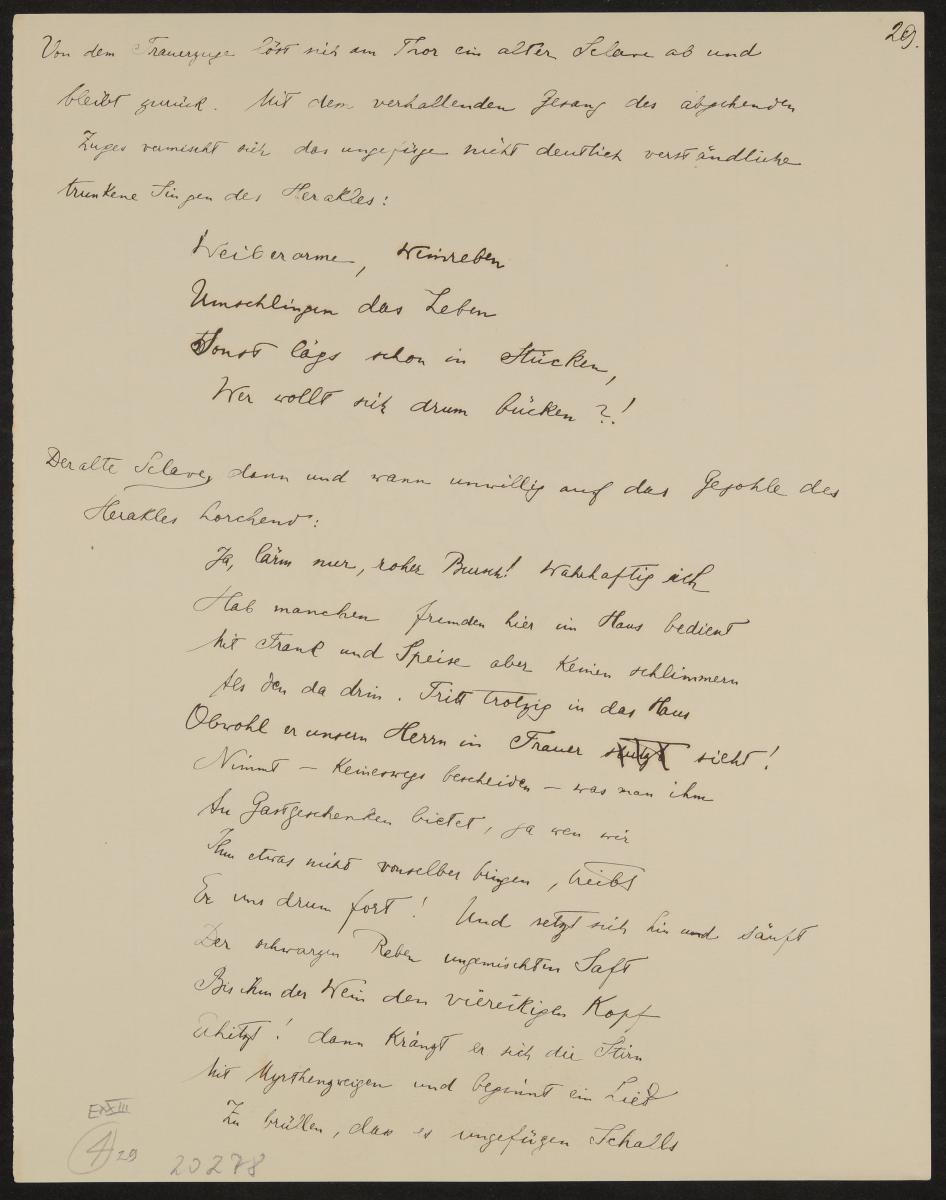 29.
Von dem Trauerzuge löst sich am Thor ein alter Sclave ab und
bleibt zurück. Mit dem verhallenden Gesang des abgehenden
Zuges vermischt sich das ungefüge nicht deutlich verständliche
trunkene Singen des Herakles:
Weiberarme, Weinreben
Umschlingen das Leben
Sonst lägs schon in Stücken,
Wer wollt sich drum bücken?!
Der alte Sclave, dann und wann unwillig auf das Gejohle des
Herakles horchend:
Ja, lärm nur, roher Bursch! Wahrhaftig ich
Hab manchen fremden hier im Haus bedient
Mit Trank und Speise aber keinen schlimmern
Als den da drin. Tritt trotzig in das Haus
Obwohl er unsern Herrn in Trauer sieht!
Nimmt – keineswegs bescheiden – was man ihm
An Gastgeschenken bietet, ja wen wir
Ihm etwas nicht vonselber bringen, treibt
Er uns drum fort! Und setzt sich hin und säuft
Der schwarzen Reben ungemischten Saft
Bis ihm der Wein den viereckigen Kopf
Erhitzt! dann kränzt er sich die Stirn
Mit Myrthenzweigen und beginnt ein Lied
Zu brüllen, das es ungefügen Schalls
E XIII
4 29
20278